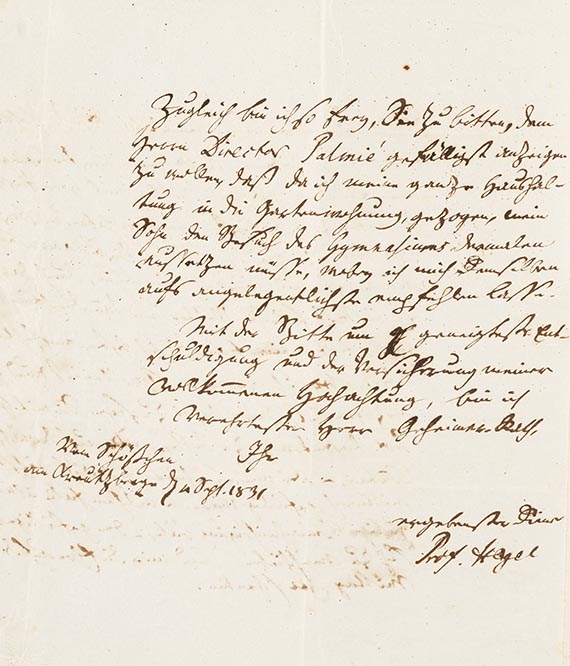 Zugleich bin ich so frey, Sie zu bitten, dem
Herrn Director Palmié gefälligst anzeigen
zu wollen, daß da ich meine ganze Haushal-
tung in die Gartenwohnung, gezogen, mein
Sohn den Besuch des Gymnasiums dermalen
aussetzen müsse, wobey ich mich Demselben
aufs angelegentlichste empfehlen lasse.
Mit der Bitte um geneigteste Ent-
schuldigung und der Versicherung meiner
vollkommenen Hochachtung, bin ich
Verehrtester Herr Geheimer-Rath,
Ihr
Vom Schlößchen
am Kreutzberge d 4 Sept. 1831
ergebenster Diener
Prof. Hegel